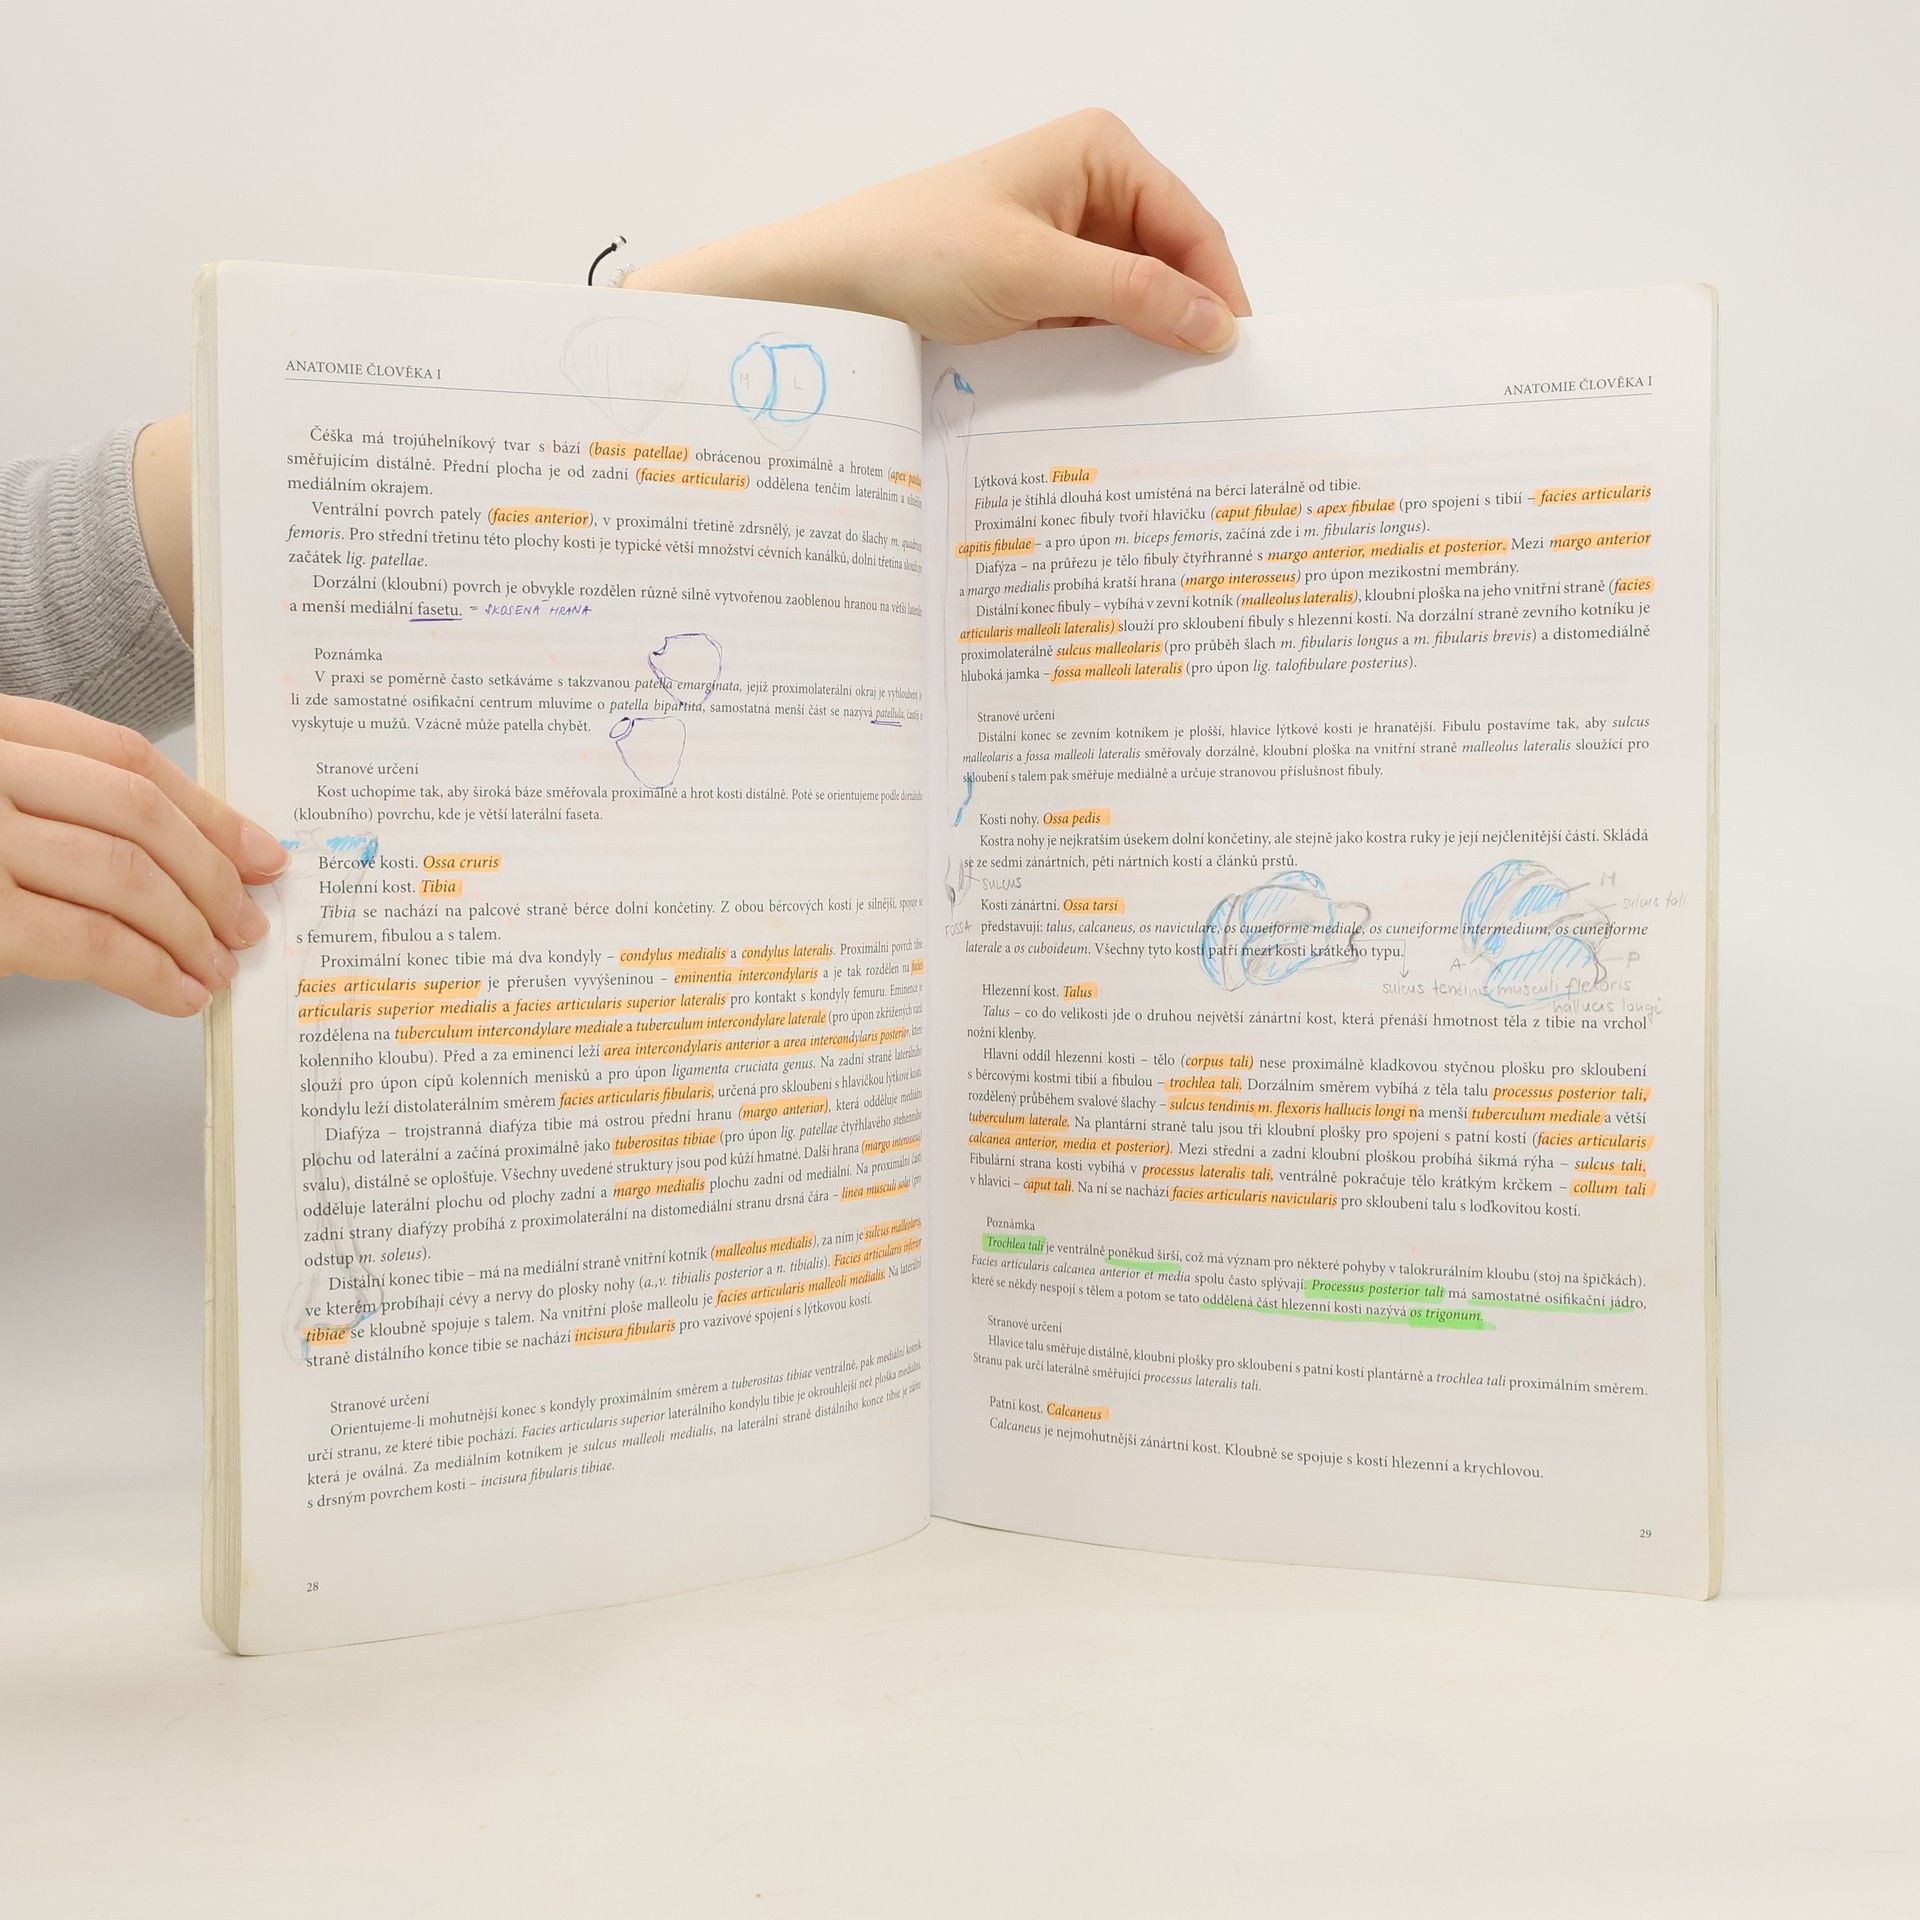 ANATOMIE ČLOVĚKA I
M L
Čéška má trojúhelníkový tvar s bází (basis patellae) obrácenou proximálně a hrotem (apex
směřujícím distálně. Přední plocha je od zadní (facies articularis) oddělena tenčím laterálním a silnějším
mediálním okrajem.
Ventrální povrch pately (facies anterior), v proximální třetině zdrsnělý, je zavzat do šlachy m.
femoris. Pro střední třetinu této plochy kosti je typické větší množství cévních kanálků, dolní třetina
začátek lig. patellae.
Dorzální (kloubní) povrch je obvykle rozdělen různě silně vytvořenou zaoblenou hranou na větší
a menší mediální fasetu. = SKOSENÁ HRANA
Poznámka
V praxi se poměrně často setkáváme s takzvanou patella emarginata, jejíž proximolaterální okraj je
li zde samostatné osifikační centrum mluvíme o patella bipartita, samostatná menší část se nazývá patellula,
vyskytuje u mužů. Vzácně může patella chybět.
Stranové určení
Kost uchopíme tak, aby široká báze směřovala proximálně a hrot kosti distálně. Poté se orientujeme podle
(kloubního) povrchu, kde je větší laterální faseta.
Bércové kosti. Ossa cruris
Holenní kost. Tibia
Tibia se nachází na palcové straně bérce dolní končetiny. Z obou bércových kostí je silnější, spojuje se
s femurem, fibulou a s talem.
Proximální konec tibie má dva kondyly – condylus medialis a condylus lateralis. Proximální povrch tibie
facies articularis superior je přerušen vyvýšeninou – eminentia intercondylaris a je tak rozdělen na facies
articularis superior medialis a facies articularis superior lateralis pro kontakt s kondyly femuru. Eminence je
rozdělena na tuberculum intercondylare mediale a tuberculum intercondylare laterale (pro úpon zkřížených vazů
kolenního kloubu). Před a za eminencí leží area intercondylaris anterior a area intercondylaris posterior, které
slouží pro úpon cípů kolenních menisků a pro úpon ligamenta cruciata genus. Na zadní straně laterálního
kondylu leží distolaterálním směrem facies articularis fibularis, určená pro skloubení s hlavičkou lýtkové kosti.
Diafýza – trojstranná diafýza tibie má ostrou přední hranu (margo anterior), která odděluje mediální
plochu od laterální a začíná proximálně jako tuberositas tibiae (pro úpon lig. patellae čtyřhlavého stehenního
svalu), distálně se oplošťuje. Všechny uvedené struktury jsou pod kůží hmatné. Další hrana (margo interosseus)
odděluje laterální plochu od plochy zadní a margo medialis plochu zadní od mediální. Na proximální části
zadní strany diafýzy probíhá z proximolaterální na distomediální stranu drsná čára – linea musculi solei (pro
odstup m. soleus).
Distální konec tibie – má na mediální straně vnitřní kotník (malleolus medialis), za ním je sulcus malleolaris,
ve kterém probíhají cévy a nervy do plosky nohy (a.,v. tibialis posterior a n. tibialis). Facies articularis inferior
tibiae se kloubně spojuje s talem. Na vnitřní ploše malleolu je facies articularis malleoli medialis. Na laterální
straně distálního konce tibie se nachází incisura fibularis pro vazivové spojení s lýtkovou kostí.
Stranové určení
Orientujeme-li mohutnější konec s kondyly proximálním směrem a tuberositas tibiae ventrálně, pak mediální kotník
určí stranu, ze které tibie pochází. Facies articularis superior laterálního kondylu tibie je okrouhlejší než ploška mediální,
která je oválná. Za mediálním kotníkem je sulcus malleoli medialis, na laterální straně distálního konce tibie je zářez
s drsným povrchem kosti – incisura fibularis tibiae.
28
ANATOMIE ČLOVĚKA I
Lýtková kost. Fibula
Fibula je štíhlá dlouhá kost umístěná na bérci laterálně od tibie.
Proximální konec fibuly tvoří hlavičku (caput fibulae) s apex fibulae (pro spojení s tibií – facies articularis
capitis fibulae – a pro úpon m. biceps femoris, začíná zde i m. fibularis longus).
Diafýza – na průřezu je tělo fibuly čtyřhranné s margo anterior, medialis et posterior. Mezi margo anterior
a margo medialis probíhá kratší hrana (margo interosseus) pro úpon mezikostní membrány.
Distální konec fibuly – vybíhá v zevní kotník (malleolus lateralis), kloubní ploška na jeho vnitřní straně (facies
articularis malleoli lateralis) slouží pro skloubení fibuly s hlezenní kostí. Na dorzální straně zevního kotníku je
proximolaterálně sulcus malleolaris (pro průběh šlach m. fibularis longus a m. fibularis brevis) a distomediálně
hluboká jamka – fossa malleoli lateralis (pro úpon lig. talofibulare posterius).
Stranové určení
Distální konec se zevním kotníkem je plošší, hlavice lýtkové kosti je hranatější. Fibulu postavíme tak, aby sulcus
malleolaris a fossa malleoli lateralis směřovaly dorzálně, kloubní ploška na vnitřní straně malleolus lateralis sloužící pro
skloubení s talem pak směřuje mediálně a určuje stranovou příslušnost fibuly.
Kosti nohy. Ossa pedis
Kostra nohy je nejkratším úsekem dolní končetiny, ale stejně jako kostra ruky je její nejčlenitější částí. Skládá
se ze sedmi zánártních, pěti nártních kostí a článků prstů.
SULCUS
M
sulcus tali
Kosti zánártní. Ossa tarsi
FOSSA
představují: talus, calcaneus, os naviculare, os cuneiforme mediale, os cuneiforme intermedium, os cuneiforme
laterale a os cuboideum. Všechny tyto kosti patří mezi kosti krátkého typu.
A P
sulcus tendinis musculi flexoris
hallucis longi
Hlezenní kost. Talus
Talus – co do velikosti jde o druhou největší zánártní kost, která přenáší hmotnost těla z tibie na vrchol
nožní klenby.
Hlavní oddíl hlezenní kosti – tělo (corpus tali) nese proximálně kladkovou styčnou plošku pro skloubení
s bércovými kostmi tibií a fibulou – trochlea tali. Dorzálním směrem vybíhá z těla talu processus posterior tali,
rozdělený průběhem svalové šlachy – sulcus tendinis m. flexoris hallucis longi na menší tuberculum mediale a větší
tuberculum laterale. Na plantární straně talu jsou tři kloubní plošky pro spojení s patní kostí (facies articularis
calcanea anterior, media et posterior). Mezi střední a zadní kloubní ploškou probíhá šikmá rýha – sulcus tali.
Fibulární strana kosti vybíhá v processus lateralis tali, ventrálně pokračuje tělo krátkým krčkem – collum tali
v hlavici – caput tali. Na ní se nachází facies articularis navicularis pro skloubení talu s loďkovitou kostí.
Poznámka
Trochlea tali je ventrálně poněkud širší, což má význam pro některé pohyby v talokrurálním kloubu (stoj na špičkách).
Facies articularis calcanea anterior et media spolu často splývají. Processus posterior tali má samostatné osifikační jádro,
které se někdy nespojí s tělem a potom se tato oddělená část hlezenní kosti nazývá os trigonum.
Stranové určení
Hlavice talu směřuje distálně, kloubní plošky pro skloubení s patní kostí plantárně a trochlea tali proximálním směrem.
Stranu pak určí laterálně směřující processus lateralis tali.
Patní kost. Calcaneus
Calcaneus je nejmohutnější zánártní kost. Kloubně se spojuje s kostí hlezenní a krychlovou.
29